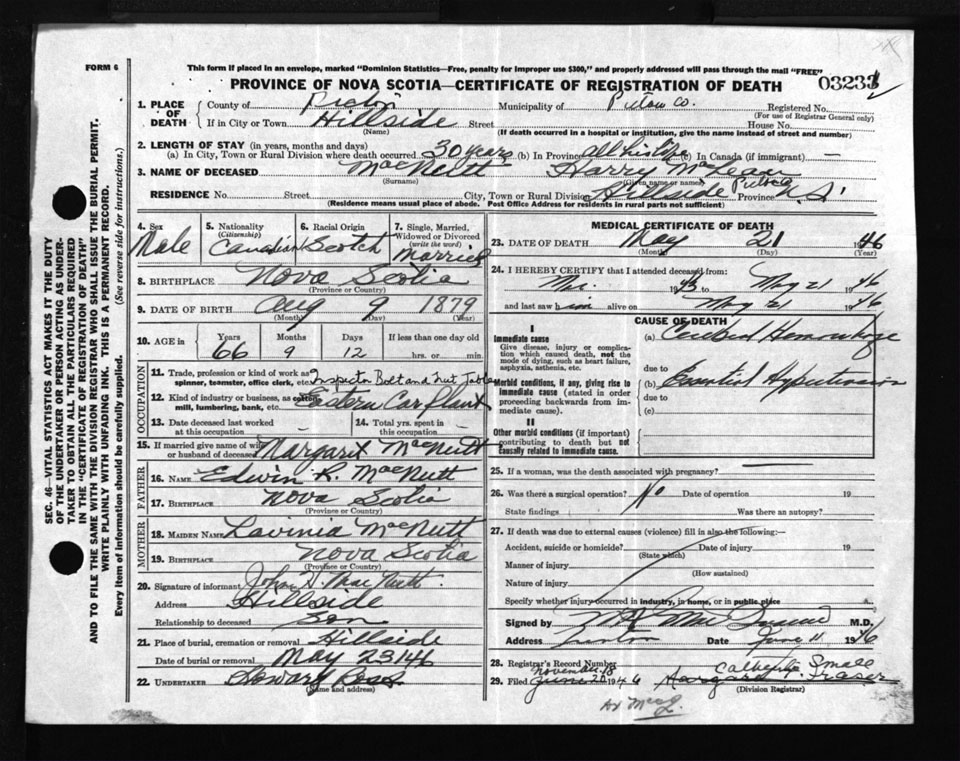 FORM 6
This form if placed in an envelope, marked "Dominion Statistics—Free, penalty for improper use $300," and properly addressed will pass through the mail "FREE"
PROVINCE OF NOVA SCOTIA—CERTIFICATE OF REGISTRATION OF DEATH
1. PLACE OF DEATH County of Pictou Municipality of Pictou Co. Registered No.
(For use of Registrar General only)
If in City or Town Hillside Street House No.
(Name) (If death occurred in a hospital or institution, give the name instead of street and number)
2. LENGTH OF STAY (in years, months and days)
(a) In City, Town or Rural Division where death occurred 30 years (b) In Province all his life (c) In Canada (if immigrant) —
3. NAME OF DECEASED MacNutt Harry MacLean
(Surname) (Given name or names)
RESIDENCE No. Street City, Town or Rural Division Hillside Pictou Province N S
(Residence means usual place of abode. Post Office Address for residents in rural parts not sufficient)
SEC. 46—VITAL STATISTICS ACT MAKES IT THE DUTY
OF THE UNDERTAKER OR PERSON ACTING AS UNDER-
TAKER TO OBTAIN ALL THE PARTICULARS REQUIRED
IN THE "CERTIFICATE OF REGISTRATION OF DEATH"
AND TO FILE THE SAME WITH THE DIVISION REGISTRAR WHO SHALL ISSUE THE BURIAL PERMIT.
WRITE PLAINLY WITH UNFADING INK. THIS IS A PERMANENT RECORD.
Every item of information should be carefully supplied. (See reverse side for instructions.)
4. Sex Male
5. Nationality (Citizenship) Canadian
6. Racial Origin Scotch
7. Single, Married, Widowed or Divorced (write the word) Married
8. BIRTHPLACE Nova Scotia
(Province or Country)
9. DATE OF BIRTH Aug 9 1879
(Month) (Day) (Year)
10. AGE in Years Months Days If less than one day old
66 9 12 hrs. or min.
OCCUPATION
11. Trade, profession or kind of work as spinner, teamster, office clerk, etc. Inspector Bolt and Nut Table
12. Kind of industry or business, as cotton mill, lumbering, bank, etc. Eastern Car Plant
13. Date deceased last worked at this occupation –
14. Total yrs. spent in this occupation –
15. If married give name of wife or husband of deceased Margaret MacNutt
FATHER
16. NAME Edwin R. MacNutt
17. BIRTHPLACE Nova Scotia
(Province or Country)
MOTHER
18. MAIDEN NAME Lavinia MacNutt
19. BIRTHPLACE Nova Scotia
(Province or Country)
20. Signature of informant John D. MacNutt
Address Hillside
Relationship to deceased Son
21. Place of burial, cremation or removal Hillside
Date of burial or removal May 23 1946
22. UNDERTAKER Howard Ross
(Name and address)
MEDICAL CERTIFICATE OF DEATH
23. DATE OF DEATH May 21 1946
(Month) (Day) (Year)
24. I HEREBY CERTIFY that I attended deceased from:
1943 May 21 1946
and last saw him alive on May 21 1946
CAUSE OF DEATH
I
Immediate cause
Give disease, injury or complication which caused death, not the mode of dying, such as heart failure, asphyxia, asthenia, etc.
(a) Cerebral Hemorrhage
due to
Morbid conditions, if any, giving rise to immediate cause (stated in order proceeding backwards from immediate cause).
(b) Essential Hypertension
due to
(c)
II
Other morbid conditions (if important) contributing to death but not causally related to immediate cause.
25. If a woman, was the death associated with pregnancy?
26. Was there a surgical operation? No Date of operation 19
State findings Was there an autopsy?
27. If death was due to external causes (violence) fill in also the following:—
Accident, suicide or homicide? Date of injury 19
(State which)
Manner of injury
(How sustained)
Nature of injury
Specify whether injury occurred in industry, in home, or in public place
Signed by M.D.
Address Trenton Date June 11 1946
28. Registrar's Record Number
29. Filed June 20 1946
Catherine Small
Margaret Fraser
(Division Registrar)